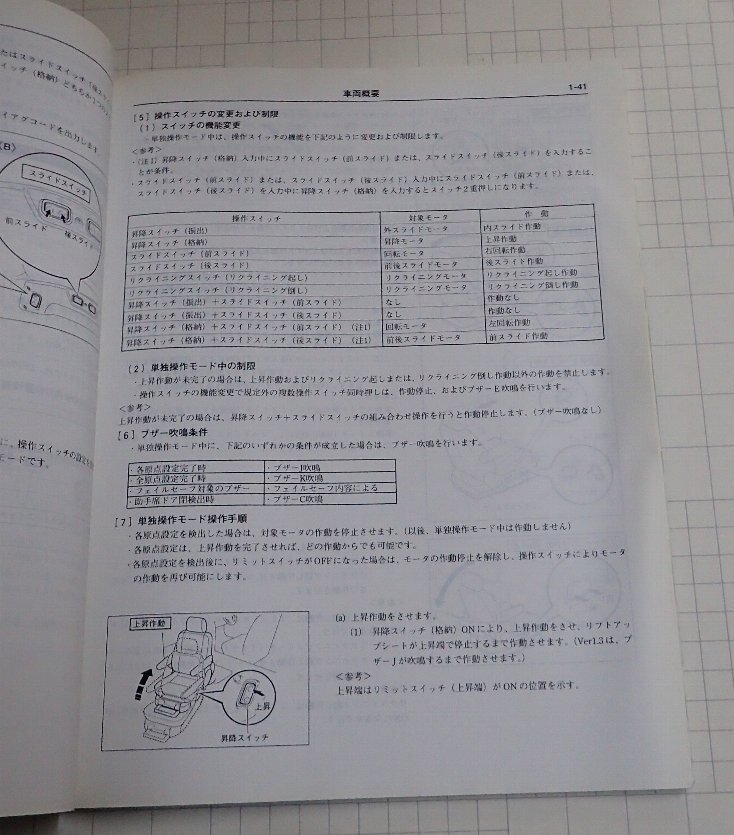 たはスライドスイッチ（後ス
イッチ（格納）どちらか1つの入
イアグコードを出力します
（B）
スライドスイッチ
前スライド
後スライド
に、操作スイッチの設定を
モードです。
車両概要
1-41
［5］操作スイッチの変更および制限
（1）スイッチの機能変更
・単独操作モード中は、操作スイッチの機能を下記のように変更および制限します。
＜参考＞
・（注1）昇降スイッチ（格納）入力中にスライドスイッチ（前スライド）または、スライドスイッチ（後スライド）を入力するこ
とが条件。
・スライドスイッチ（前スライド）または、スライドスイッチ（後スライド）入力中にスライドスイッチ（前スライド）または、
スライドスイッチ（後スライド）を入力中に昇降スイッチ（格納）を入力するとスイッチ2重押しになります。
操作スイッチ 対象モータ 作　動
昇降スイッチ（振出） 外スライドモータ 内スライド作動
昇降スイッチ（格納） 昇降モータ 上昇作動
スライドスイッチ（前スライド） 回転モータ 右回転作動
スライドスイッチ（後スライド） 前後スライドモータ 後スライド作動
リクライニングスイッチ（リクライニング起し） リクライニングモータ リクライニング起し作動
リクライニングスイッチ（リクライニング倒し） リクライニングモータ リクライニング倒し作動
昇降スイッチ（振出）＋スライドスイッチ（前スライド） なし 作動なし
昇降スイッチ（振出）＋スライドスイッチ（後スライド） なし 作動なし
昇降スイッチ（格納）＋スライドスイッチ（前スライド）（注1） 回転モータ 左回転作動
昇降スイッチ（格納）＋スライドスイッチ（後スライド）（注1） 前後スライドモータ 前スライド作動
（2）単独操作モード中の制限
・上昇作動が未完了の場合は、上昇作動およびリクライニング起しまたは、リクライニング倒し作動以外の作動を禁止します。
・操作スイッチの機能変更で規定外の複数操作スイッチ同時押しは、作動停止、およびブザーE吹鳴を行います。
＜参考＞
上昇作動が未完了の場合は、昇降スイッチ＋スライドスイッチの組み合わせ操作を行うと作動停止します。（ブザー吹鳴なし）
［6］ブザー吹鳴条件
・単独操作モード中に、下記のいずれかの条件が成立した場合は、ブザー吹鳴を行います。
・各原点設定完了時 ・ブザーJ吹鳴
・全原点設定完了時 ・ブザーK吹鳴
・フェイルセーフ対象のブザー ・フェイルセーフ内容による
・助手席ドア閉検出時 ・ブザーC吹鳴
［7］単独操作モード操作手順
・各原点設定を検出した場合は、対象モータの作動を停止させます。（以後、単独操作モード中は作動しません）
・各原点設定は、上昇作動を完了させれば、どの作動からでも可能です。
・各原点設定を検出後に、リミットスイッチがOFFになった場合は、モータの作動停止を解除し、操作スイッチによりモータ
の作動を再び可能にします。
上昇作動
上昇
昇降スイッチ
(a) 上昇作動をさせます。
(1) 昇降スイッチ（格納）ONにより、上昇作動をさせ、リフトアッ
プシートが上昇端で停止するまで作動させます。（Ver1.3は、ブ
ザーJが吹鳴するまで作動させます。）
＜参考＞
上昇端はリミットスイッチ（上昇端）がONの位置を示す。